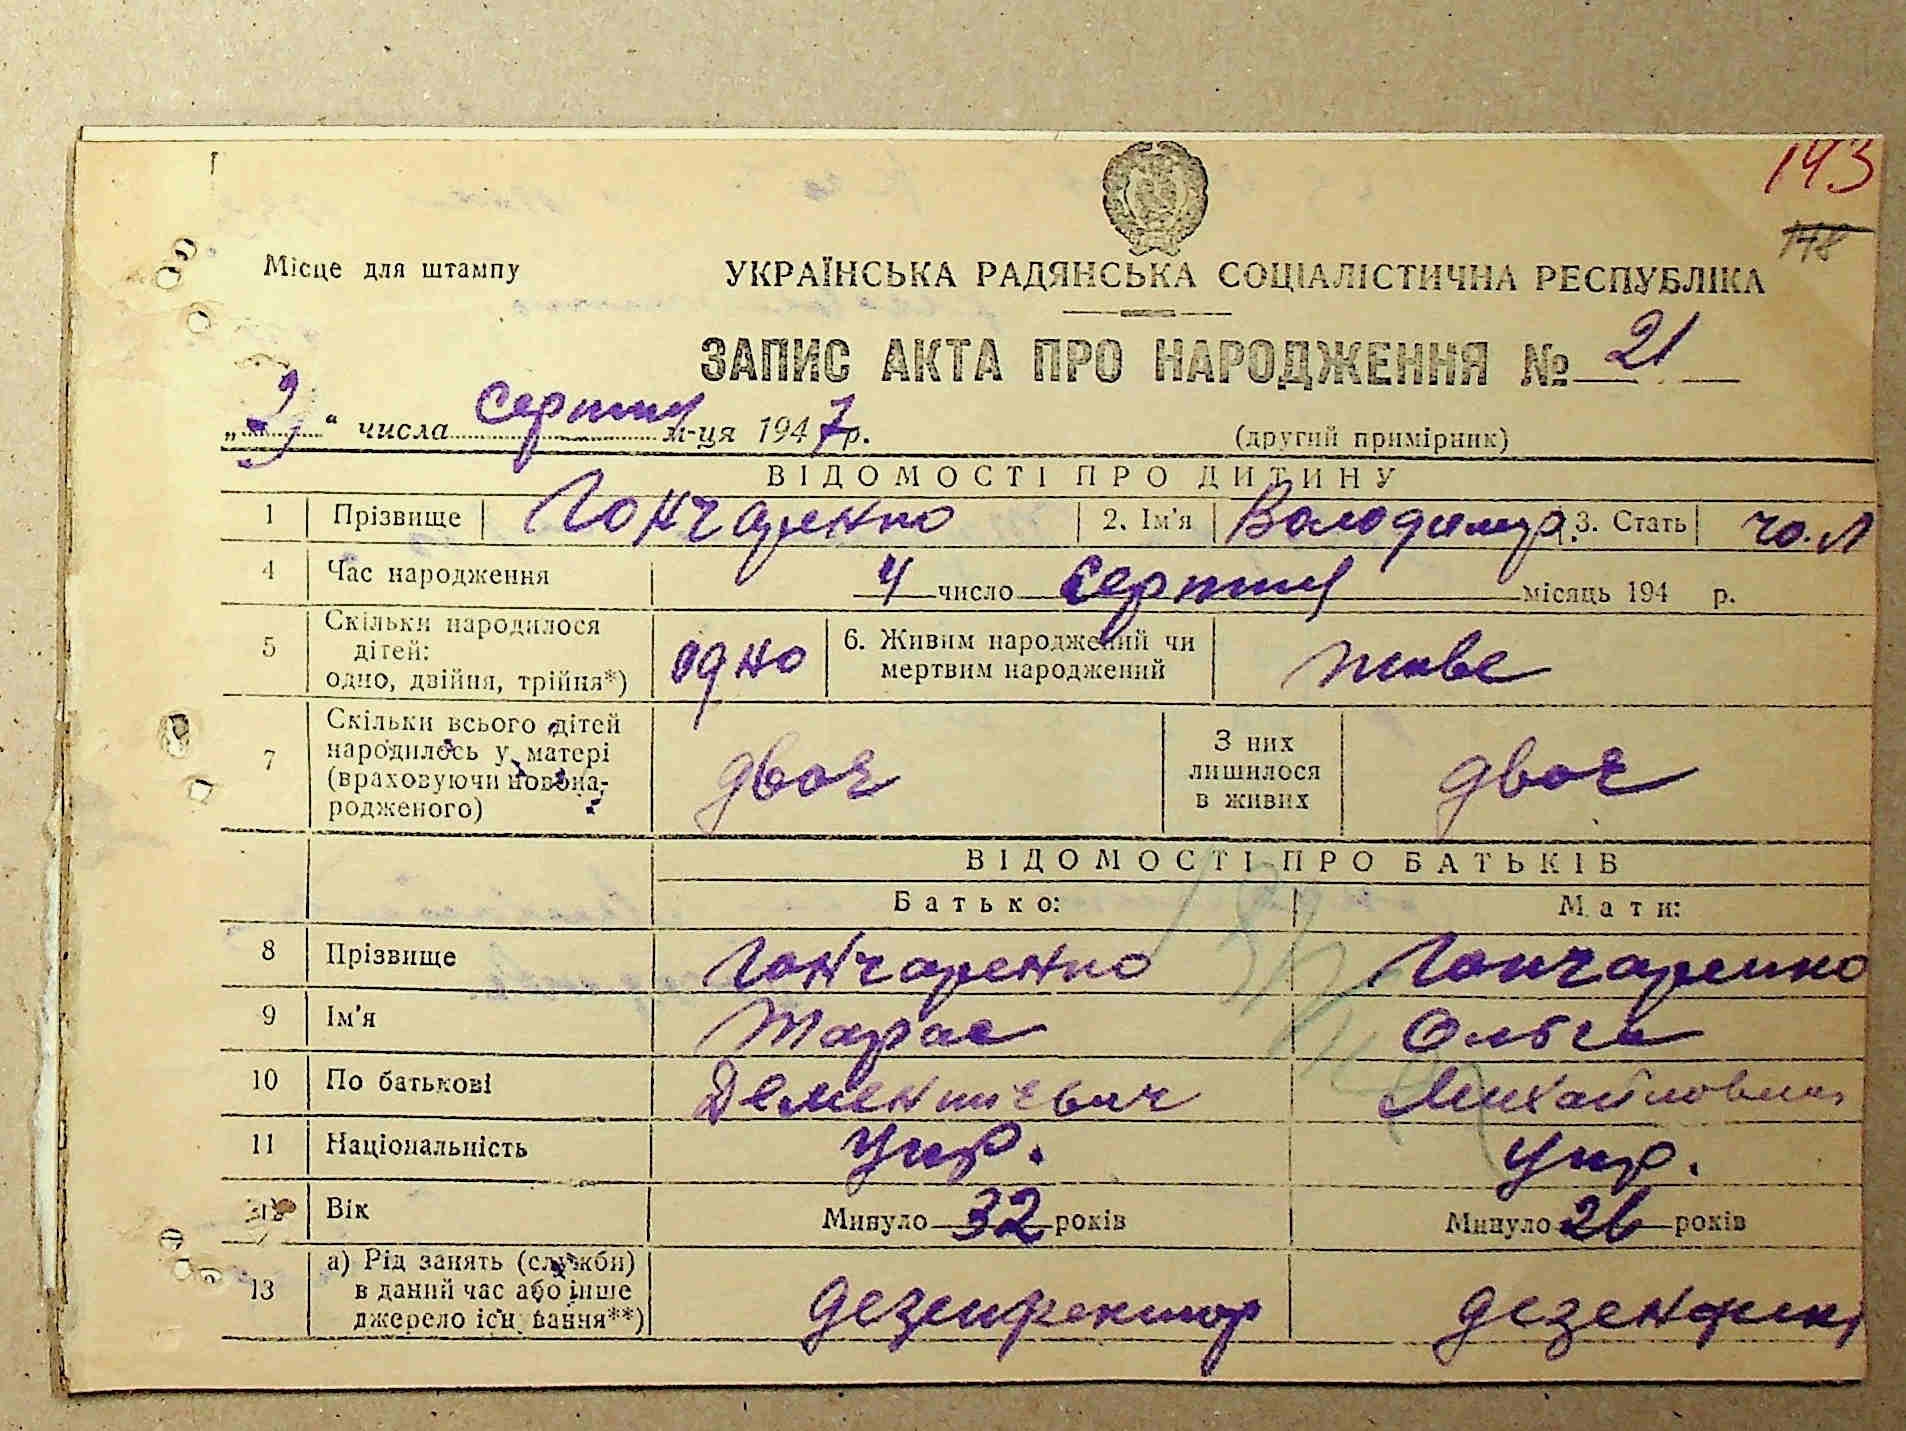 143
148
Місце для штампу
УКРАЇНСЬКА РАДЯНСЬКА СОЦІАЛІСТИЧНА РЕСПУБЛІКА
ЗАПИС АКТА ПРО НАРОДЖЕННЯ № 21
„ 9 “ числа серпня м-ця 1947 р. (другий примірник)
ВІДОМОСТІ ПРО ДИТИНУ
1 Прізвище Гончаренко 2. Ім'я Володимир 3. Стать чол
4 Час народження 4 число серпня місяць 194 р.
5 Скільки народилося дітей: одно, двійня, трійня*) одно 6. Живим народжений чи мертвим народжений живе
7 Скільки всього дітей народилось у матері (враховуючи новонародженого) двоє З них лишилося в живих двоє
ВІДОМОСТІ ПРО БАТЬКІВ
Батько: Мати:
8 Прізвище Гончаренко Гончаренко
9 Ім'я Тарас Ольга
10 По батькові Дементієвич Михайловна
11 Національність укр. укр.
12 Вік Минуло 32 років Минуло 26 років
13 а) Рід занять (служби) в даний час або інше джерело існування**) дезенфектор дезенфект